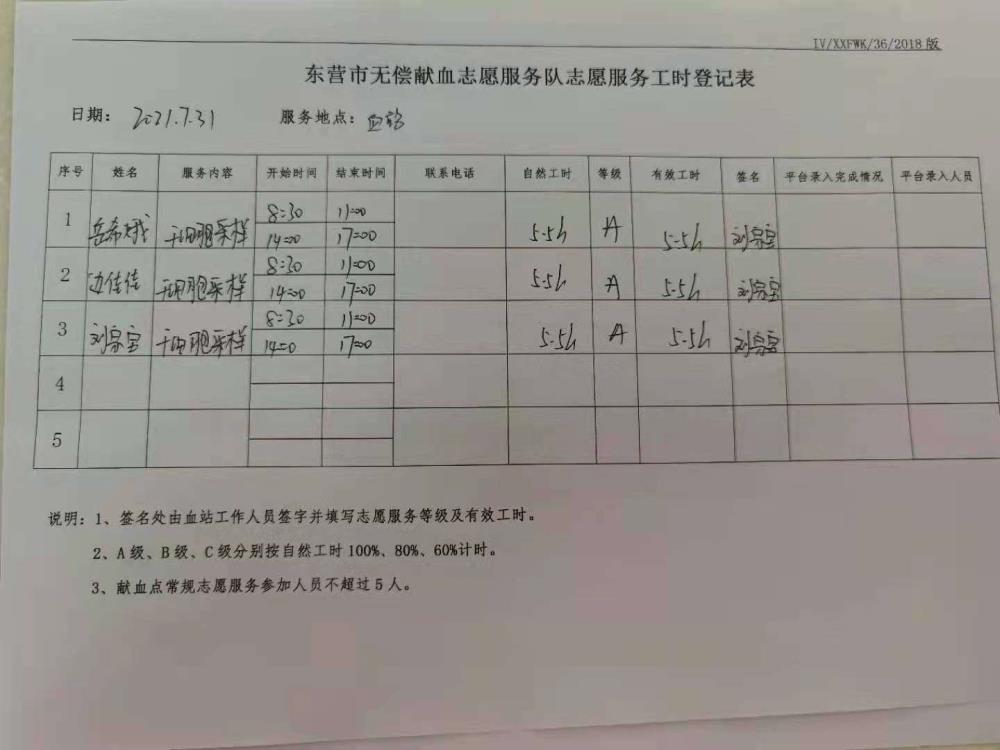 IV/XXFWK/36/2018版
东营市无偿献血志愿服务队志愿服务工时登记表
日期: 2021.7.31 服务地点: 血站
序号 姓名 服务内容 开始时间 结束时间 联系电话 自然工时 等级 有效工时 签名 平台录入完成情况 平台录入人员
1 岳希娥 干细胞采样 8:30 11:00 5.5h A 5.5h 刘宗宝
14:00 17:00
2 边佳佳 干细胞采样 8:30 11:00 5.5h A 5.5h 刘宗宝
14:00 17:00
3 刘宗宝 干细胞采样 8:30 11:00 5.5h A 5.5h 刘宗宝
14:00 17:00
4
5
说明:1、签名处由血站工作人员签字并填写志愿服务等级及有效工时。
2、A级、B级、C级分别按自然工时100%、80%、60%计时。
3、献血点常规志愿服务参加人员不超过5人。